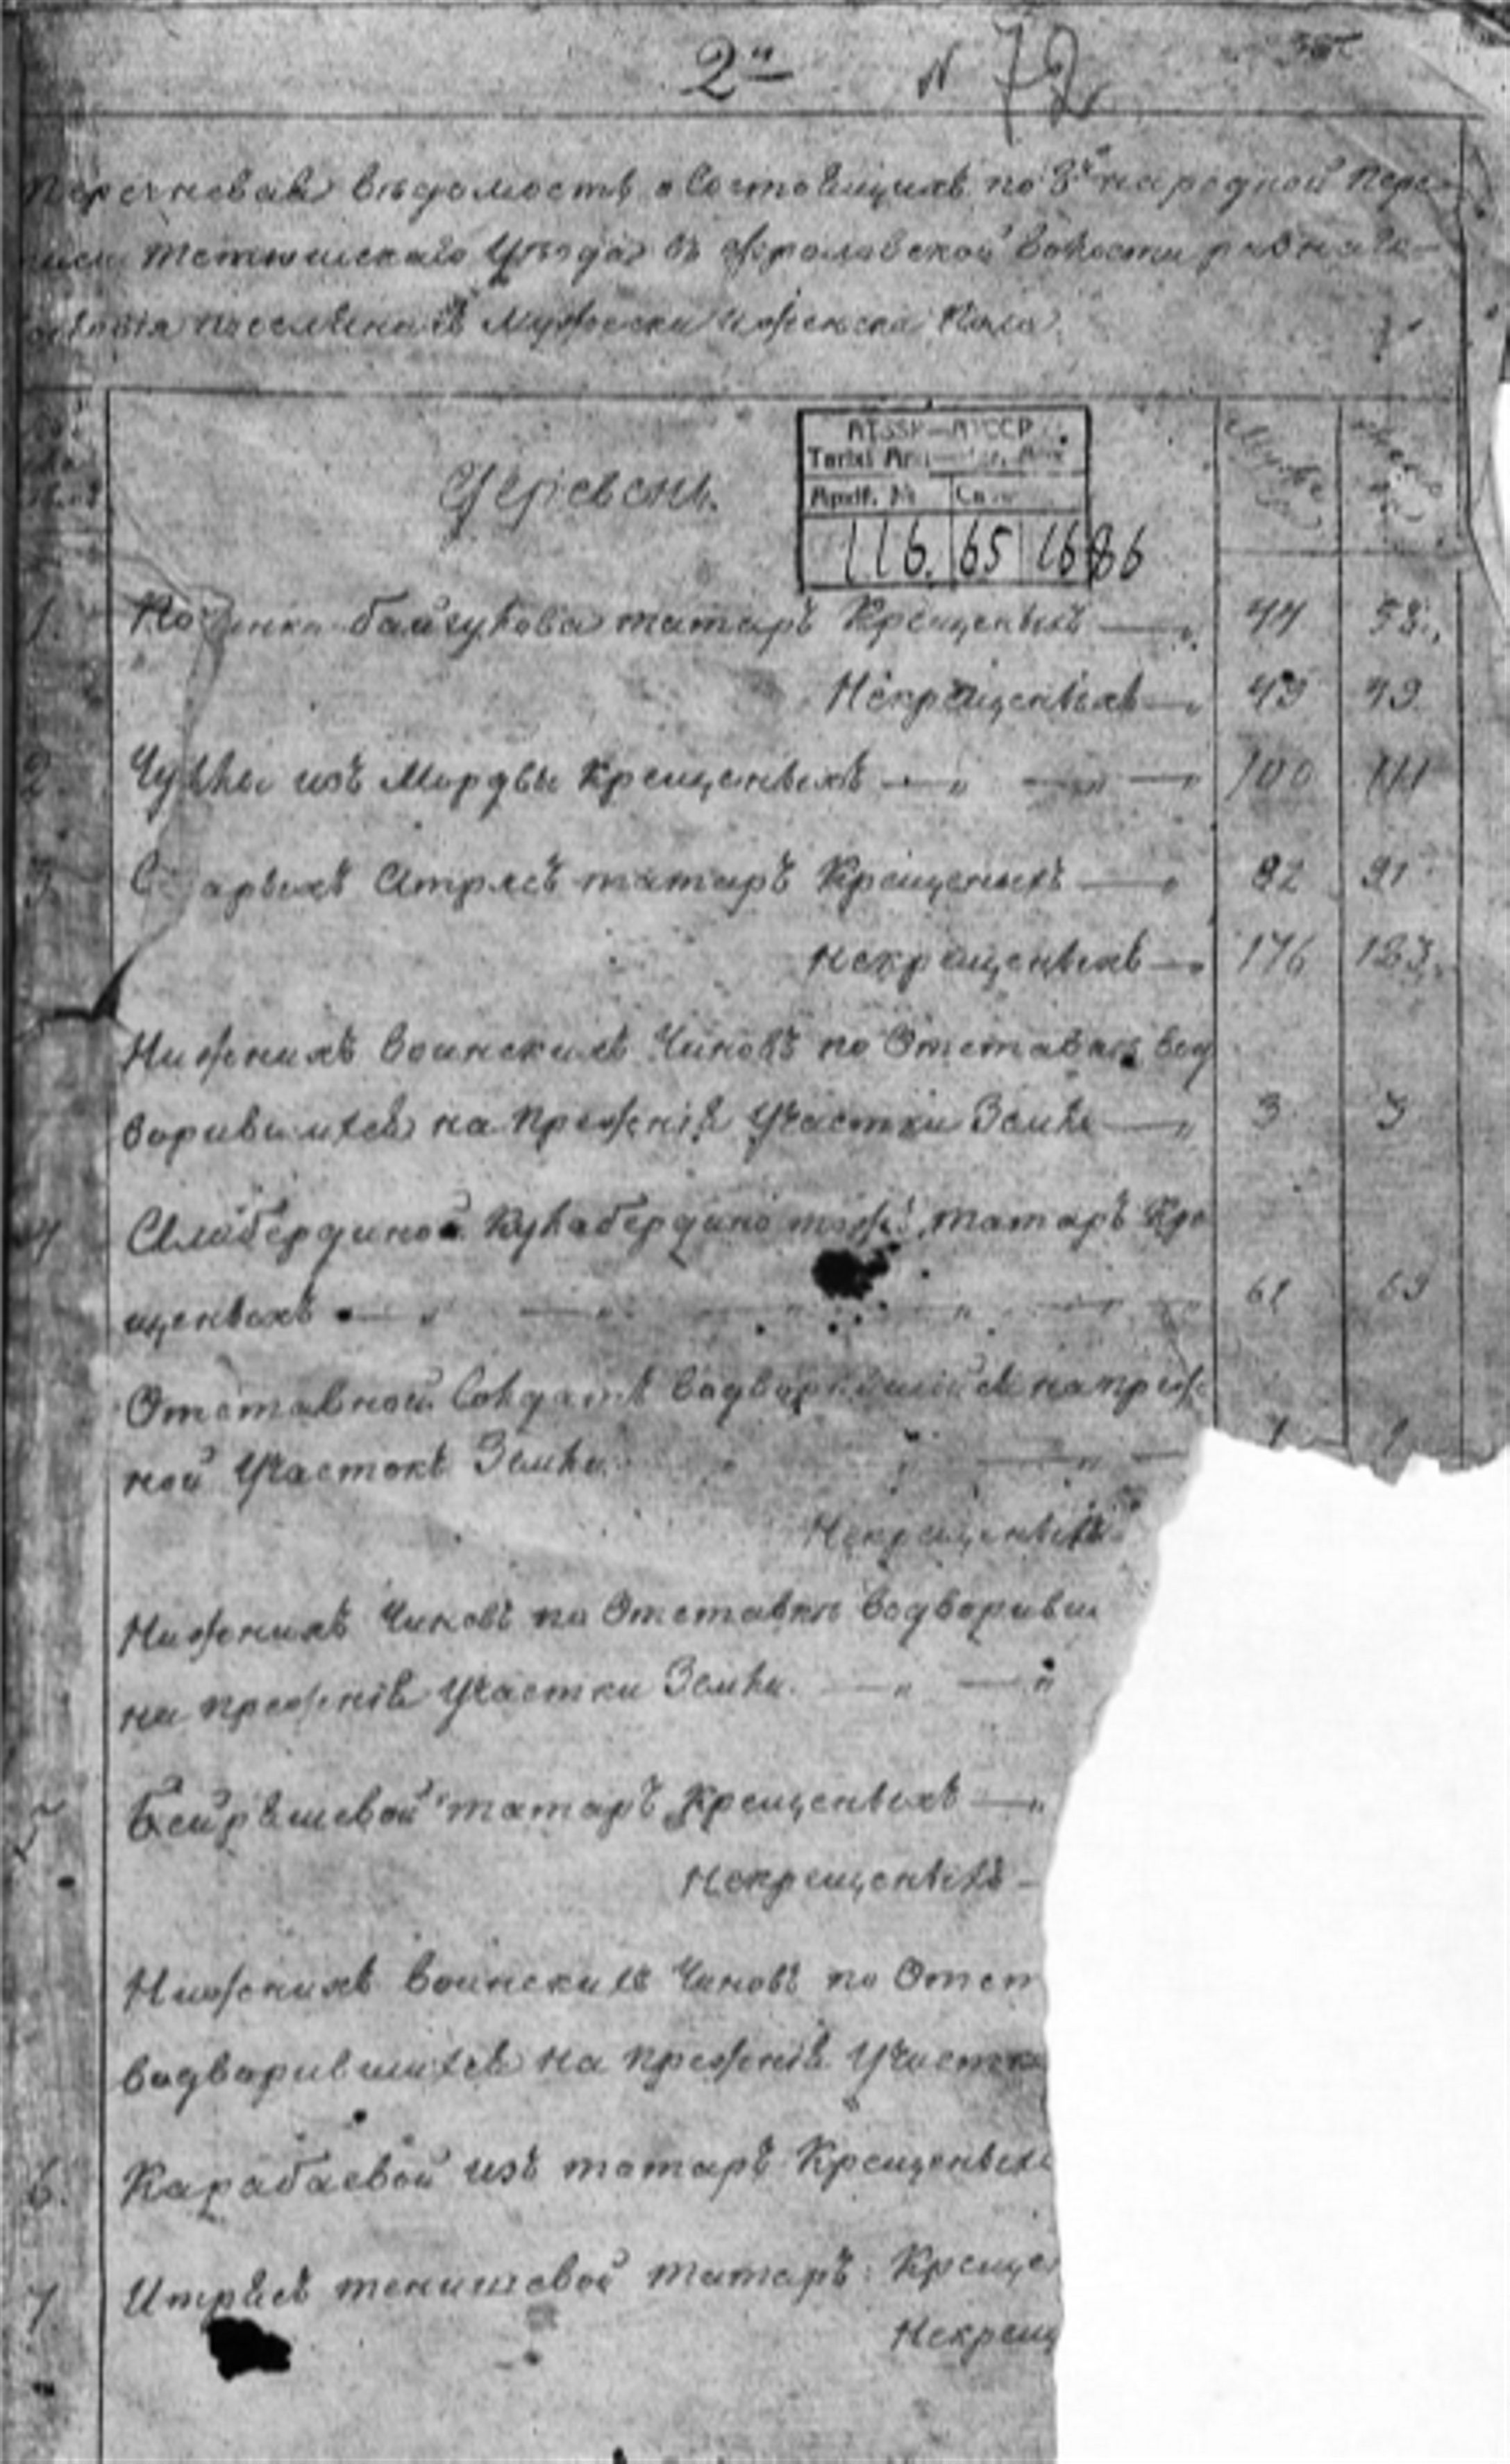 2я № 72
Перечневая ведомость о состоящихъ по 8й народной Пере-
писи Тетюшскаго Уезда въ Фроловской Волости
поселянахъ Мужеска и женска Пола
Деревень.
АТССР
116. 65 1686
1. Починка Байгулова татаръ Крещеныхъ — 44 58
Некрещеныхъ — 43 49
2 Чулки изъ Мордвы Крещеныхъ — — — 100 111
3 Старыхъ Атрясъ татаръ Крещеныхъ — 82 91
Некрещеныхъ — 176 183
Нижнихъ воинскихъ Чиновъ по Отставке вод
ворившихся на прежнія Участки Земли — 3 3
4 Алабердиной Кулабердино тожъ, татаръ Кре
щеныхъ — — — — — 61 69
Отставной Солдатъ водворившийся на преж
ной Участокъ Земли — — 1 1
Некрещеныхъ
Нижнихъ Чиновъ по Отставке водворивш
на прежнія Участки Земли. — —
5 Беиряшевой татаръ Крещеныхъ —
Некрещеныхъ —
Нижнихъ воинскихъ Чиновъ по Отст
водворившихся на прежнія Участки
6. Карабаевой изъ татаръ Крещеныхъ
7 Итрясъ тенишевой татаръ Креще
Некрещ